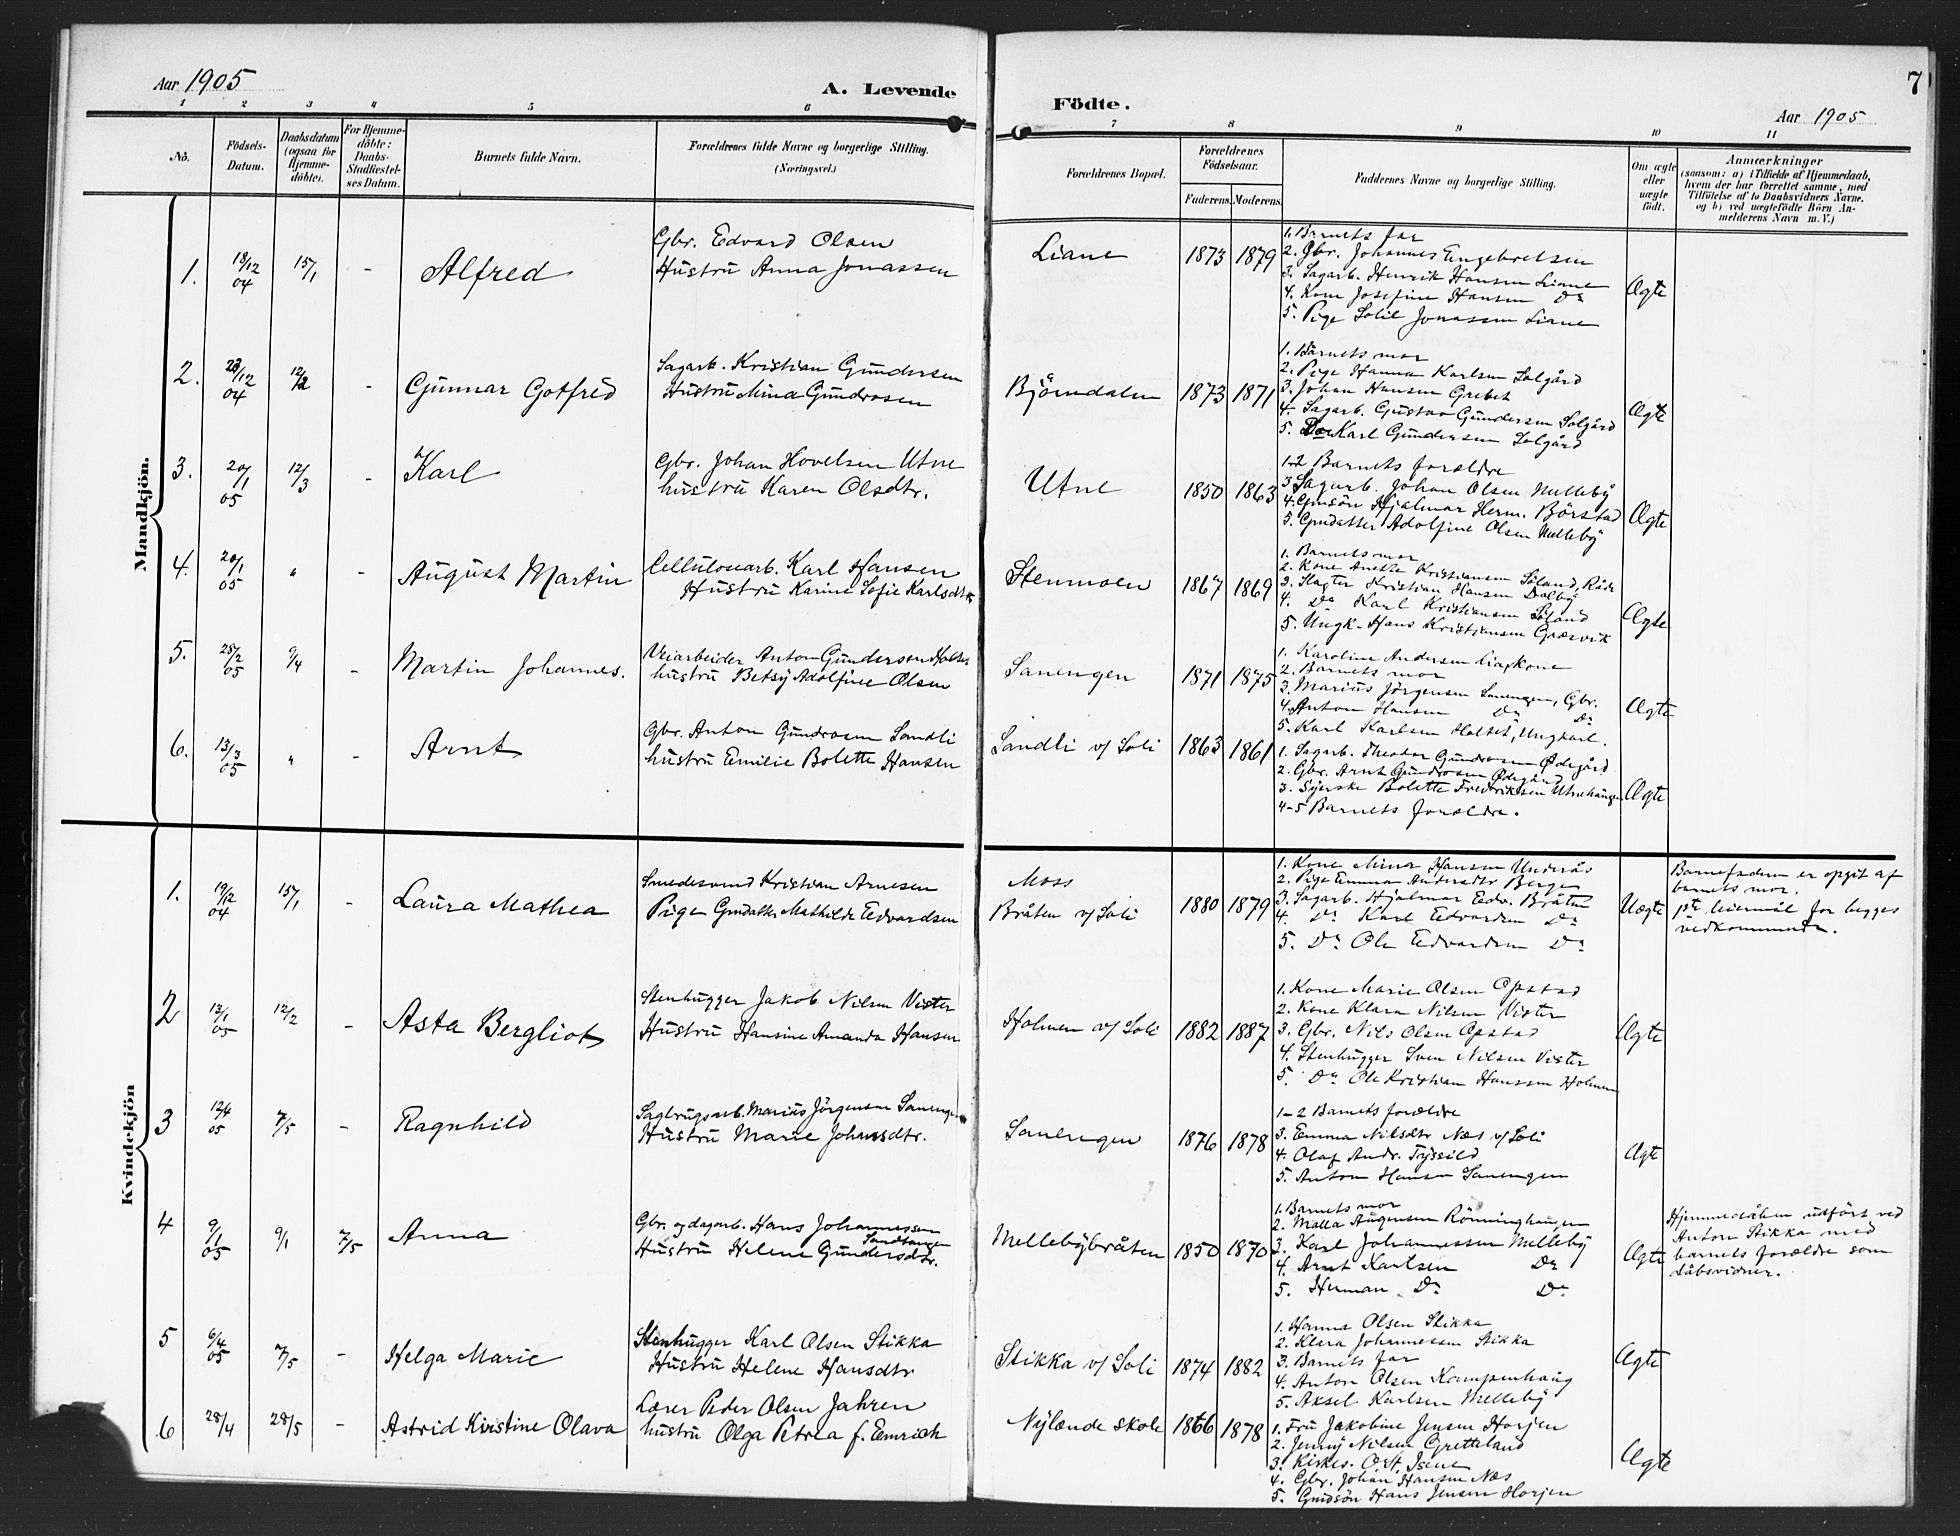 Aar 1905
A. Levende
Födte.
7
Aar 1905
1 2 3 4 5 6 7 8 9 10 11
No.
Födsels-
Datum.
Daabsdatum
(ogsaa for
Hjemme-
döbte).
For Hjemme-
döbte:
Daabs-
Stadfæstel-
ses Datum.
Barnets fulde Navn.
Forældrenes fulde Navne og borgerlige Stilling.
(Næringsvei.)
Forældrenes Bopæl.
Forældrenes
Födselsaar.
Faderens. Moderens.
Faddernes Navne og borgerlige Stilling.
Om ægte
eller
uægte
født.
Anmærkninger
(saasom: a) i Tilfælde af Hjemmedaab,
hvem der har forrettet samme, med
Tilföielse af to Daabsvidners Navne,
og b) ved uægtefödte Börn An-
melderens Navn m. V.)
Mandkjön.
1. 18/12 04 15/1 - Alfred
Gbr. Edvard Olsen
Hustru Anna Jonassen
Liane 1873 1879
1. Barnets far
2. Gbr. Johannes Engebretsen
3. Sagarb. Henrik Hansen Liane
4. Kone Josefine Hansen Do
5. Pige Jonassen Liane
Ægte
2. 23/12 04 12/2 - Gunnar Gotfred
Sagarb. Kristian Gundersen
Hustru Mina Gundrosen
Björndalen 1873 1871
1. Barnets mor
2. Pige Hanna Karlsen Solgård
3. Johan Hansen Grebet
4. Sagarb. Gustav Gundersen Solgård
5. Do Karl Gundersen Solgård
Ægte
3. 20/1 05 12/3 - Karl
Gbr. Johan Hovelsen Utne
hustru Karen Olsdtr.
Utne 1850 1863
1-2 Barnets forældre
3 Sagarb. Johan Olsen Melleby
4. Gmsön Hjalmar Herm. Börstad
5. Gmdatter Adolfine Olsen Melleby
Ægte
4. 20/1 05 " - August Martin
Cellulosearb. Karl Hansen
Hustru Karine Sofie Karlsdtr
Stenmoen 1867 1869
1. Barnets mor
2. Kone Anette Kristiansen Råde
3. Slagter Kristian Hansen Dalby
4. Do Karl Kristiansen
5. Ungk. Hans Kristiansen Græsvik
Ægte
5. 28/2 05 9/4 - Martin Johannes.
Veiarbeider Anton Gundersen
hustru Betsy Adolfine Olsen
Sanengen 1871 1875
1. Karoline Andersen
2. Barnets mor
3. Marius Jörgensen Sanengen, Gbr.
4. Anton Hansen Do Do
5. Karl Karlsen Holtet, Ungkarl.
Ægte
6. 13/3 05 " - Arnt
Gbr. Anton Gundrosen Sandli
hustru Emilie Bolette Hansen
Sandli v/ Soli 1863 1861
1. Sagarb. Theodor Gundrosen Ødegård
2. Gbr. Arnt Gundrosen Ødegård
3. Syerske Bolette Fredriksen Utnehaugen
4-5 Barnets forældre.
Ægte
Kvindekjön
1. 19/12 04 15/1 - Laura Mathea
Smedesvend Kristian Arnesen
Pige Gmdatter Mathilde Edvardsen
Moss
Bråten v/ Soli 1880 1879
1. Kone Mina Hansen Underås
2. Pige Emma Andersdtr Berge
3. Sagarb. Hjalmar Edv. Bråten
4. Do Karl Edvardsen Do
5. Do Ole Edvardsen Do
Uægte
Barnefaderen er opgit af
barnets mor.
1ste leiermål for begges
vedkommende.
2 13/1 05 12/2 - Asta Bergliot
Stenhugger Jakob Nilsen Vister
Hustru Hansine Amanda Hansen
Holmen v/ Soli 1882 1887
1. Kone Marie Olsen Opstad
2. Kone Klara Nilsen Vister
3. Gbr. Nils Olsen Opstad
4. Stenhugger Sven Nilsen Vister
5. Do Ole Kristian Hanssen Holmen
Ægte
3 13/4 05 7/5 - Ragnhild
Sagbrugsarb. Marius Jörgensen Sanengen
Hustru Marie Johansdtr.
Sanengen 1876 1878
1-2 Barnets forældre
3. Emma Nilsdtr Næs v/ Soli
4. Olaf Andr. Trysild
5. Anton Hansen Sanengen
Ægte
4 9/1 05 9/1 7/5 Anna
Gbr. og dagarb. Hans Johannessen
Sandtangen
Hustru Helene Gundersdtr.
Mellebybråten 1850 1870
1. Barnets mor
2. Malla Augensen Rönninghaugen
3. Karl Johannessen Melleby
4. Arnt Karlsen Do
5. Herman Do Do
Ægte
Hjemmedåben udført ved
Anton Stikka med
barnets forældre som
dåbsvidner.
5 6/4 05 7/5 - Helga Marie
Stenhugger Karl Olsen Stikka
Hustru Helene Hansdtr
Stikka v/ Soli 1874 1882
1. Hanna Olsen Stikka
2. Klara Johannessen Stikka
3. Barnets far
4. Anton Olsen Kampenhaug
5. Aksel Karlsen Melleby
Ægte
6 28/4 28/5 - Astrid Kristine Olava
Lærer Peder Olsen Jahren
hustru Olga Petrea f. Emrich
Nylænde skole 1866 1878
1. Fru Jakobine Jensen Horjen
2. Jenny Nilsen Gretteland
3. Kirkes. O. Isene
4. Gbr. Johan Hansen Næs
5. Gmdsön Hans Jensen Horjen
Ægte